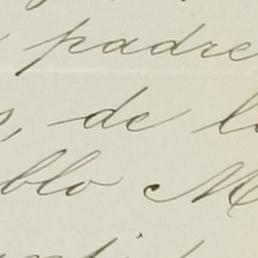 padre
s, de l
blo M